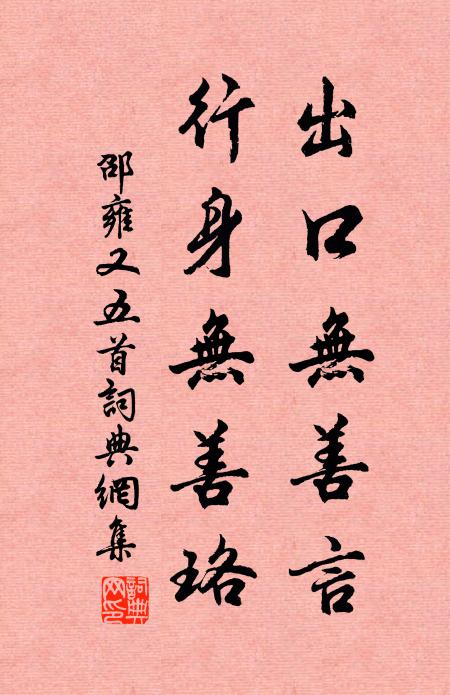 出口無善言
行身無善珞
邵雍又五首詞典網集
詞典网印